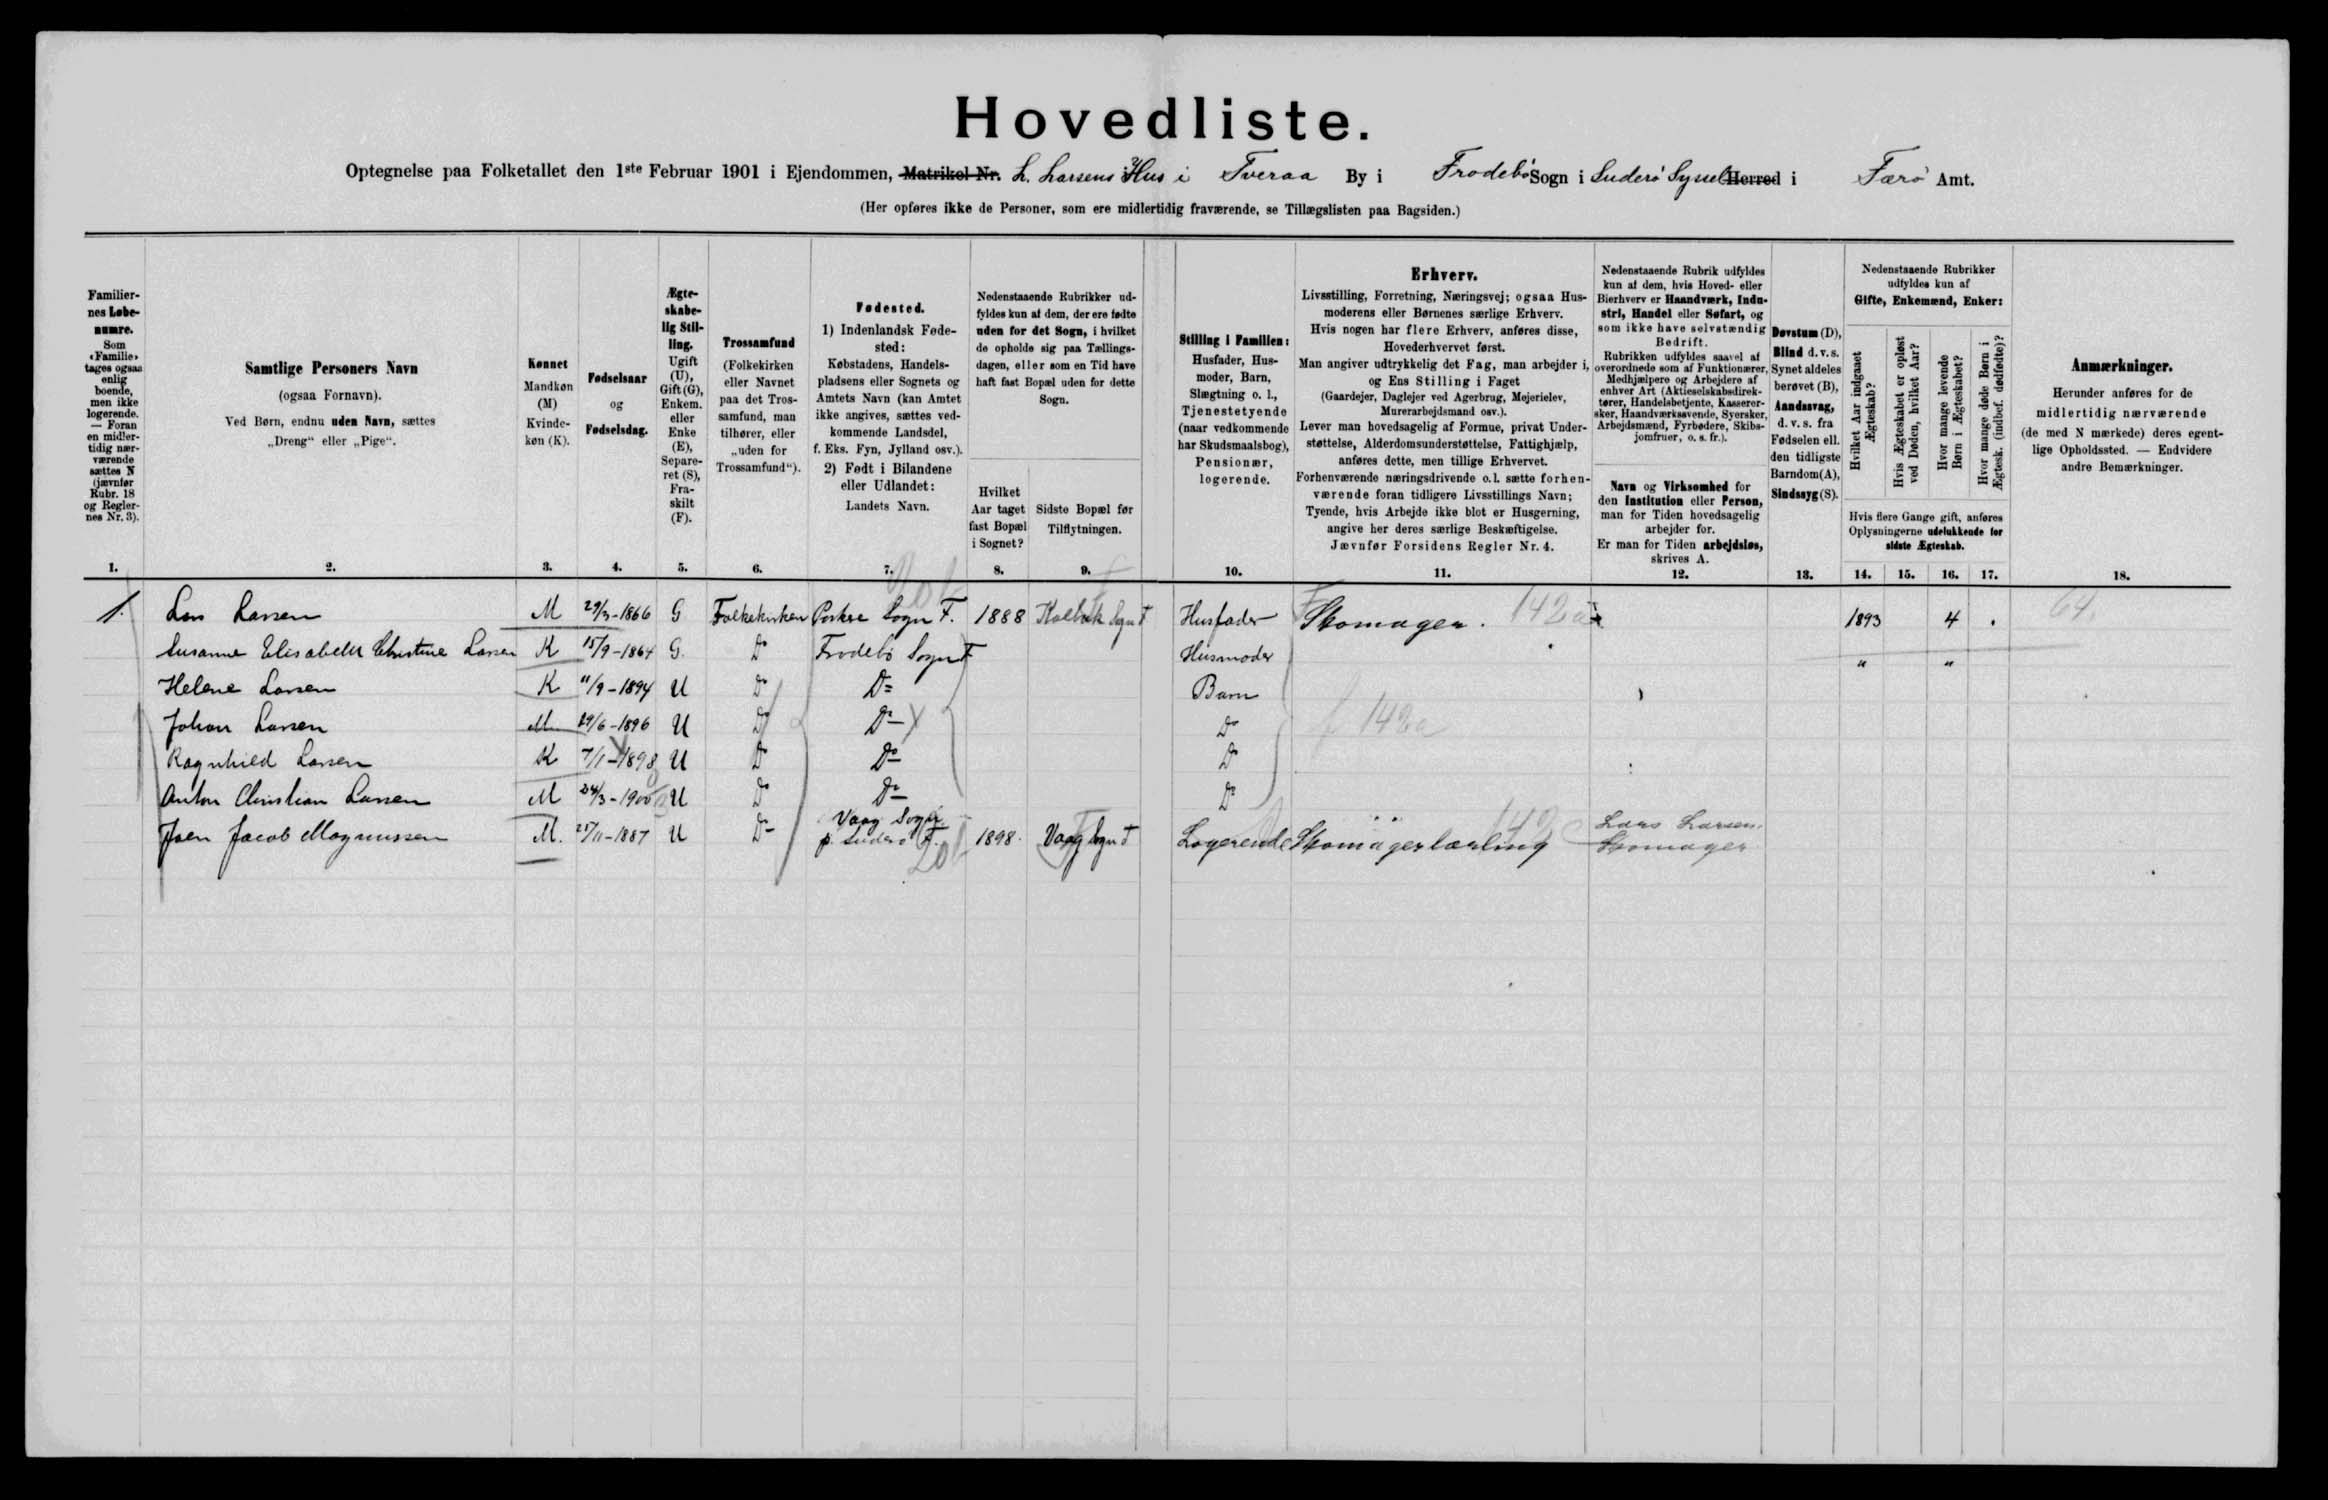 Hovedliste.
Optegnelse paa Folketallet den 1ste Februar 1901 i Ejendommen, Matrikel Nr. L. Larsens Hus i Tveraa By i Frodebø Sogn i Suderø Syssel Herred i Færø Amt.
(Her opføres ikke de Personer, som ere midlertidig fraværende, se Tillægslisten paa Bagsiden.)
Familier-
nes Løbe-
numre.
Som
«Familie»
tages ogsaa
enlig
boende,
men ikke
logerende.
— Foran
en midler-
tidig nær-
værende
sættes N
(jævnfør
Rubr. 18
og Regler-
nes Nr. 3).
1.
Samtlige Personers Navn
(ogsaa Fornavn).
Ved Børn, endnu uden Navn, sættes
„Dreng“ eller „Pige“.
2.
Kønnet
Mandkøn
(M)
Kvinde-
køn (K).
3.
Fødselsaar
og
Fødselsdag.
4.
Ægte-
skabe-
lig Stil-
ling.
Ugift
(U),
Gift (G),
Enkem.
eller
Enke
(E),
Separe-
ret (S),
Fra-
skilt
(F).
5.
Trossamfund
(Folkekirken
eller Navnet
paa det Tros-
samfund, man
tilhører, eller
„uden for
Trossamfund“).
6.
Fødested.
1) IndenlandskFøde-
sted:
Købstadens, Handels-
pladsens eller Sognets og
Amtets Navn (kan Amtet
ikke angives, sættes ved-
kommende Landsdel,
f. Eks. Fyn, Jylland osv.).
2) Født i Bilandene
eller Udlandet:
Landets Navn.
7.
Nedenstaaende Rubrikker ud-
fyldes kun af dem, der ere fødte
uden for det Sogn, i hvilket
de opholde sig paa Tællings-
dagen, eller som en Tid have
haft fast Bopæl uden for dette
Sogn.
Hvilket
Aar taget
fast Bopæl
i Sognet?
8.
Sidste Bopæl før
Tilflytningen.
9.
Stilling i Familien:
Husfader, Hus-
moder, Barn,
Slægtning o. l.,
Tjenestetyende
(naar vedkommende
har Skudsmaalsbog),
Pensionær,
logerende.
10.
Erhverv.
Livsstilling, Forretning, Næringsvej; ogsaa Hus-
moderens eller Børnenes særlige Erhverv.
Hvis nogen har flere Erhverv, anføres disse,
Hovederhvervet først.
Man angiver udtrykkelig det Fag, man arbejder i,
og Ens Stilling i Faget
(Gaardejer, Daglejer ved Agerbrug, Mejerielev,
Murerarbejdsmand osv.).
Lever man hovedsagelig af Formue, privat Under-
støttelse, Alderdomsunderstøttelse, Fattighjælp,
anføres dette, men tillige Erhvervet.
Forhenværende næringsdrivende o. l. sætte forhen-
værende foran tidligere Livsstillings Navn;
Tyende, hvis Arbejde ikke blot er Husgerning,
angive her deres særlige Beskæftigelse.
Jævnfør Forsidens Regler Nr. 4.
11.
Nedenstaaende Rubrik udfyldes
kun af dem, hvis Hoved- eller
Bierhverv er Haandværk, Indu-
stri, Handel eller Søfart, og
som ikke have selvstændig
Bedrift.
Rubrikken udfyldes saavel af
overordnede som af Funktionærer,
Medhjælpere og Arbejdere af
enhver Art (Aktieselskabsdirek-
tører, Handelsbetjente, Kasserer-
sker, Haandværkssvende, Syersker,
Arbejdsmænd, Fyrbødere, Skibs-
jomfruer, o. s. fr.).
Navn og Virksomhed for
den Institution eller Person,
man for Tiden hovedsagelig
arbejder for.
Er man for Tiden arbejdsløs,
skrives A.
12.
Døvstum (D),
Blind d. v. s.
Synet aldeles
berøvet (B),
Aandssvag,
d. v. s. fra
Fødselen ell.
den tidligste
Barndom (A),
Sindssyg (S).
13.
Nedenstaaende Rubrikker
udfyldes kun af
Gifte, Enkemænd, Enker:
Hvilket Aar indgaaet
Ægteskab?
Hvis Ægteskabet er opløst
ved Døden, hvilket Aar?
Hvor mange levende
Børn i Ægteskabet?
Hvor mange døde Børn i
Ægtesk. (indbef. dødfødte)?
Hvis flere Gange gift, anføres
Oplysningerne udelukkende for
sidste Ægteskab.
14. 15. 16. 17.
Anmærkninger.
Herunder anføres for de
midlertidig nærværende
(de med N mærkede) deres egent-
lige Opholdssted. — Endvidere
andre Bemærkninger.
18.
1. Lars Larsen M 29/3-1866 G Folkekirken Porkere Sogn F. 1888 Kvalbøk Sogn F Husfader Skomager. 142a 1893 4 64.
Susanne Elisabeth Christine Larsen K 15/9-1864 G. Do Frodebø Sogn F Husmoder " "
Helene Larsen K 11/9-1894 U Do Do Barn
Johan Larsen M 29/6-1896 U Do Do Do 142a
Ragnhild Larsen K 7/1-1898 U Do Do Do
Anton Christian Larsen M 24/3-1900 U Do Do Do
Joen Jacob Magnussen M. 25/11-1887 U Do Vaag Sogn
p. Suderø F. 1898. Vaag Sogn F Logerende Skomagerlærling Lars Larsen.
Skomager